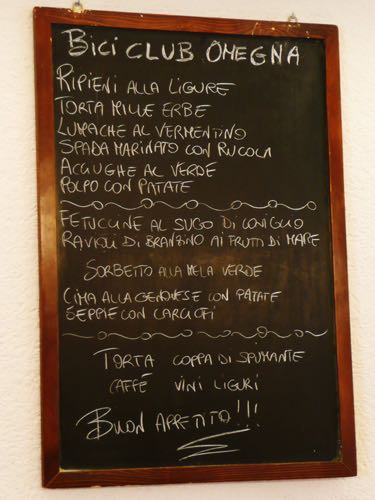 BICI CLUB OMEGNA
RIPIENI ALLA LIGURE
TORTA MILLE ERBE
LUMACHE AL VERMENTINO
SPADA MARINATO CON RUCOLA
ACCIUGHE AL VERDE
POLPO CON PATATE
FETUCCINE AL SUGO DI CONIGLIO
RAVIOLI DI BRANZINO AI FRUTTI DI MARE
SORBETTO ALLA MELA VERDE
CIMA ALLA GENOVESE CON PATATE
SEPPIE CON CARCIOFI
TORTA COPPA DI SPUMANTE
CAFFÉ VINI LIGURI
BUON APPETITO!!!